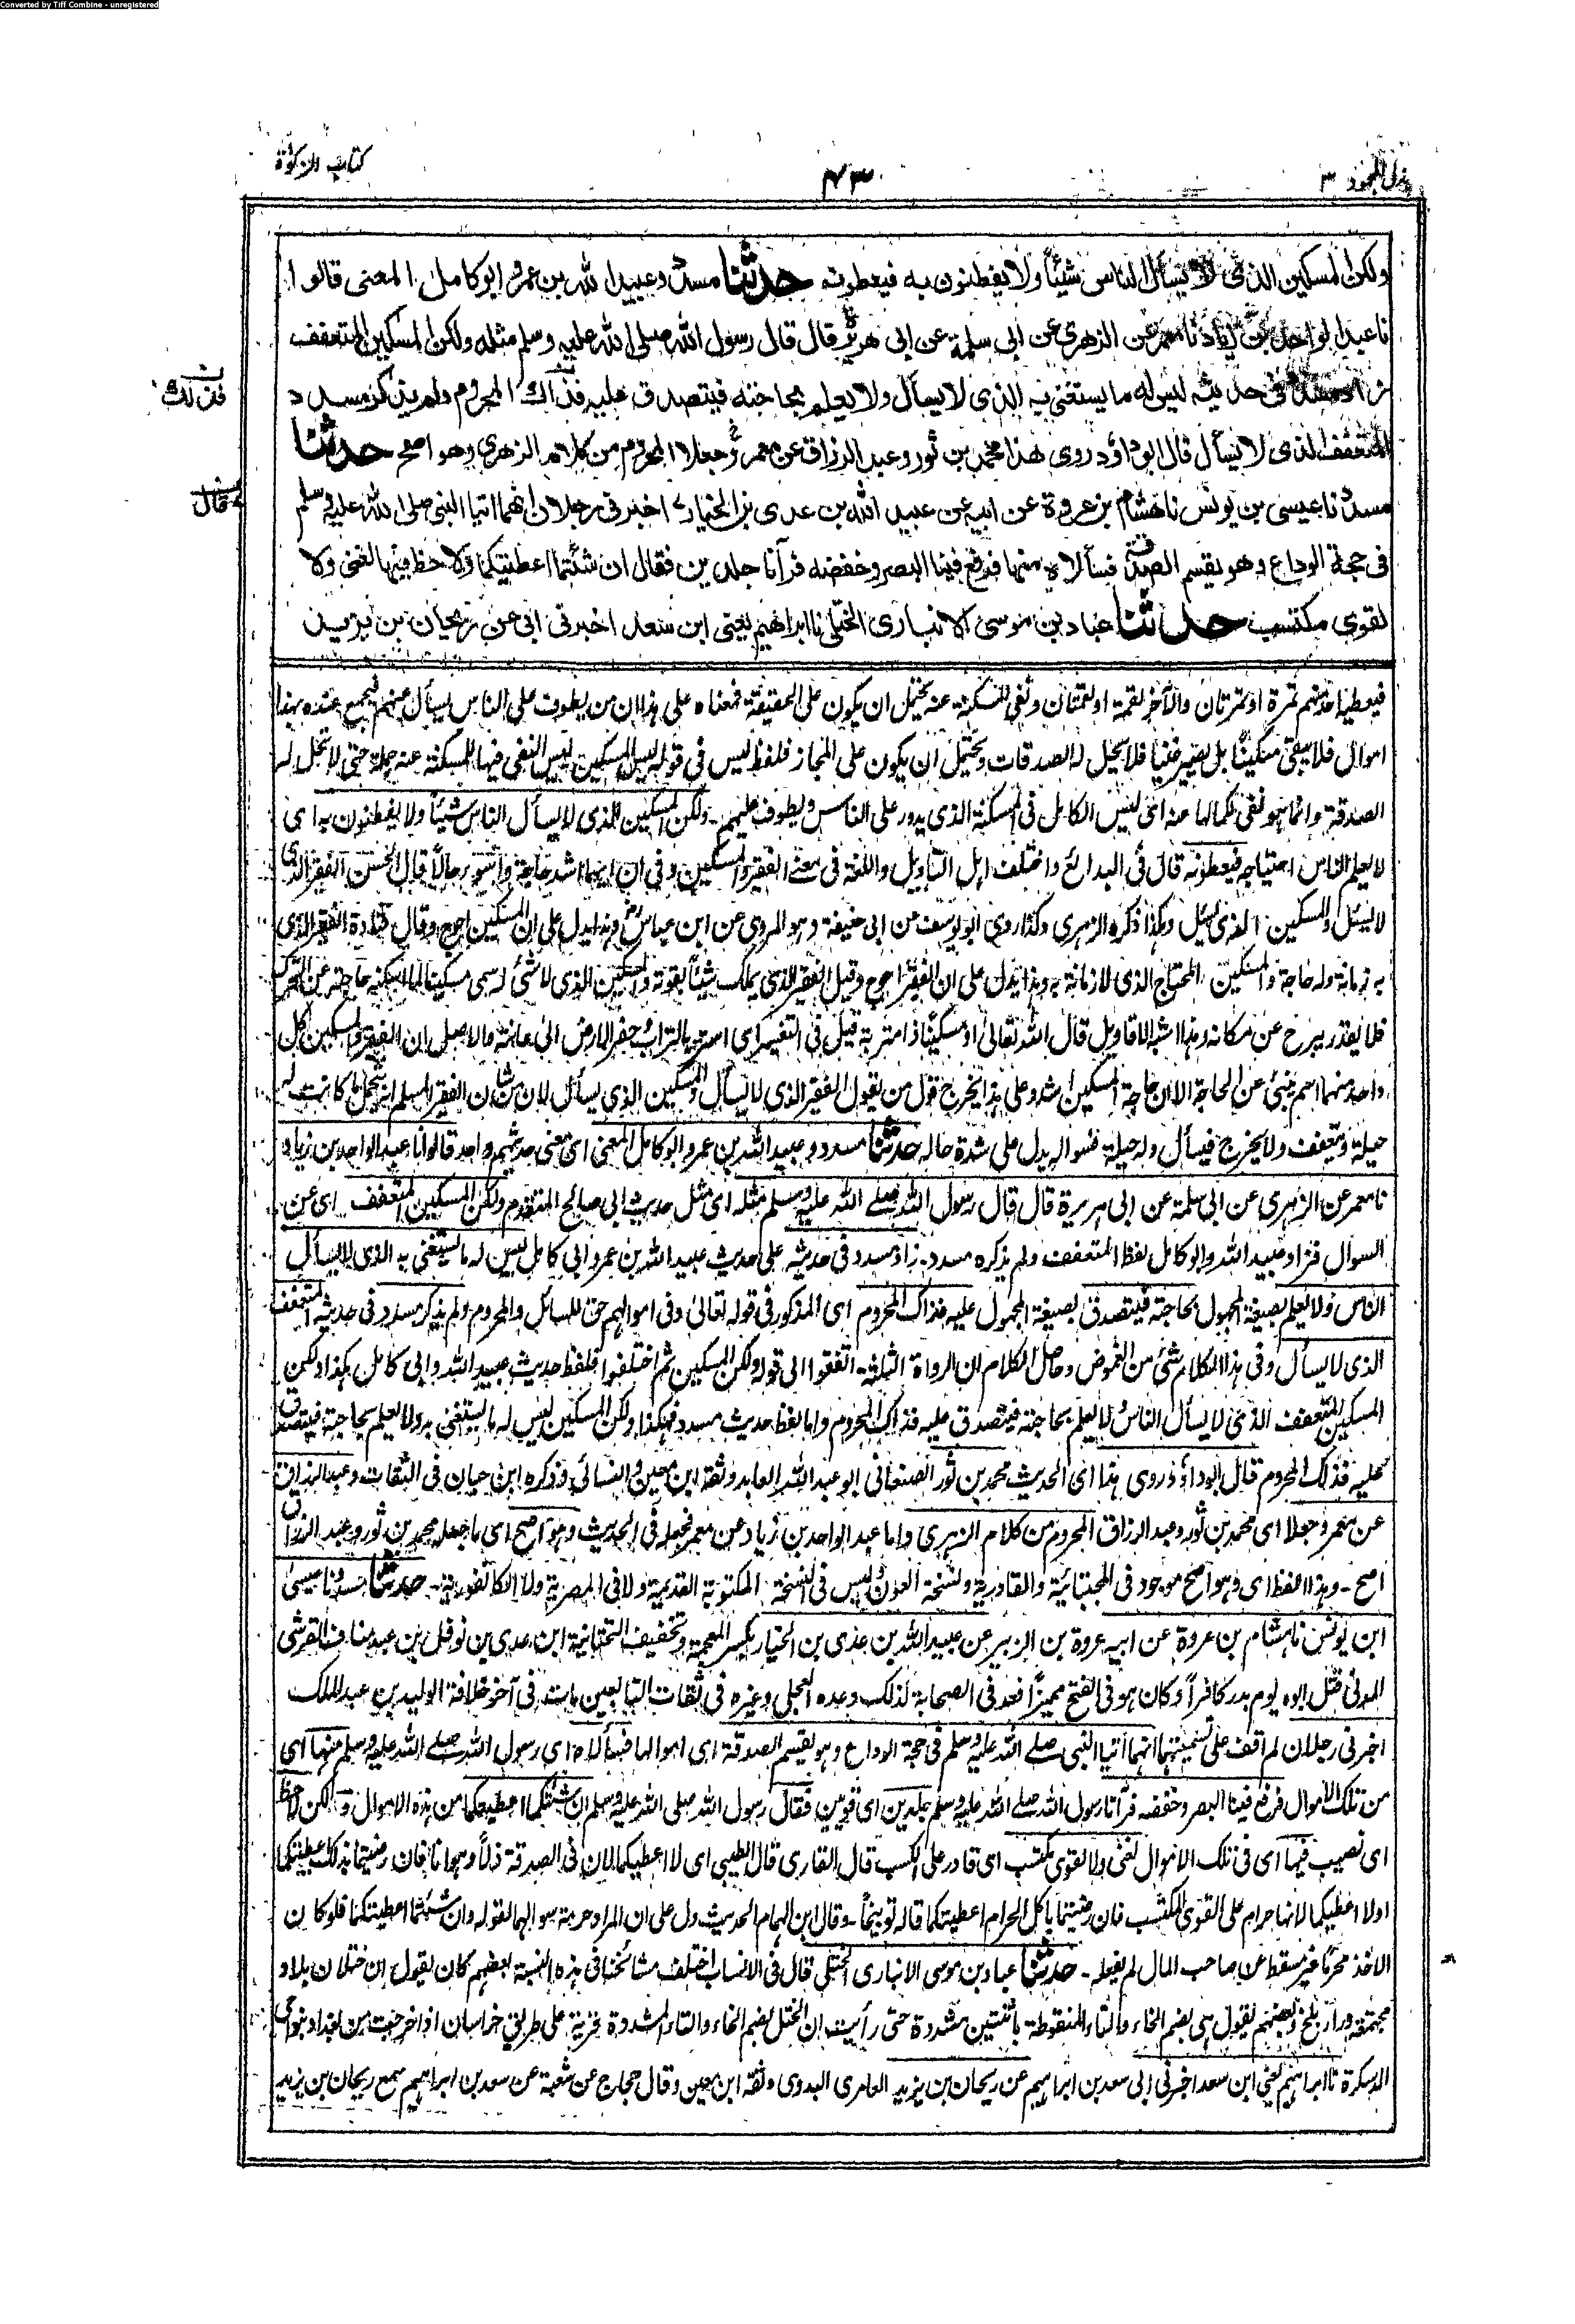 Converted by Tiff Combine - unregistered
بذل المجهود ٣
٤٣
كتاب الزكوة
ولكن المسكين الذى لا يسأل الناس شيئاً ولا يفطنون به فيعطونه حدثنا مسدد وعبيد الله بن عمر و ابو كامل المعنى قالوا
نا عبد الواحد بن زياد نا معمر عن الزهرى عن ابى سلمة عن ابى هريرة قال قال رسول الله صلى الله عليه وسلم مثله ولكن المسكين المتعفف
زاد مسدد فى حديثه ليس له ما يستغنى به الذى لا يسأل ولا يعلم بحاجته فيتصدق عليه فذاك المحروم ولم يذكر مسدد
المتعفف الذى لا يسأل قال ابو داؤد روى هذا محمد بن ثور وعبد الرزاق عن معمر وجعلا المحروم من كلام الزهرى وهو اصح حدثنا
مسدد نا عيسى بن يونس نا هشام بن عروة عن ابيه عن عبيد الله بن عدى بن الخيار اخبرنى رجلان انهما اتيا النبى صلى الله عليه وسلم
فى حجة الوداع وهو يقسم الصدقة فسألاه منها فرفع فينا البصر وخفضه فرآنا جلدين فقال ان شئتما اعطيتكما ولا حظ فيها لغنى ولا
لقوى مكتسب حدثنا عباد بن موسى الانبارى الختلى نا ابراهيم يعنى ابن سعد اخبرنى ابى عن ريحان بن يزيد
فذلك
قال
فيعطيه احد منهم تمرة او تمرتان والآخر لقمة او لقمتان ونفى المسكنة عنه يحتمل ان يكون على الحقيقة فمعناه على هذا ان من يطوف على الناس ليسأل عنهم فيجمع عنده بهذا
اموال فلا يبقى مسكيناً بل يصير غنياً فلا يحل له الصدقات ويحتمل ان يكون على المجاز فلفظ ليس فى قوله ليس المسكين ليس النفى فيها للمسكنة عنه جملة حتى لا تحل له
الصدقة وانما هو نفى كمالها عنه اى ليس الكامل فى المسكنة الذى يدور على الناس ويطوف عليهم - ولكن المسكين الذى لا يسأل الناس شيئاً ولا يفطنون به اى
لا يعلم الناس احتياجه فيعطونه قال فى البدائع واختلف اهل التاويل واللغة فى معنى الفقير والمسكين وفى ان ايهما اشد حاجة واسوء حالاً قال الحسن الفقير الذى
لا يسئل والمسكين الذى يسئل وهكذا ذكره الزهرى وكذا روى ابو يوسف عن ابى حنيفة وهو المروى عن ابن عباس وهذا يدل على ان المسكين احوج وقال قتادة الفقير الذى
به زمانة وله حاجة والمسكين المحتاج الذى لا زمانة به وهذا يدل على ان الفقير احوج وقيل الفقير الذى يملك شيئاً يقوته والمسكين الذى لا شئ له سمى مسكيناً لما اسكنه حاجته عن التحرك
فلا يقدر يبرح عن مكانه وهذا اشبه الاقاويل قال الله تعالى او مسكيناً ذا متربة قيل فى التفسير اى استتر بالتراب وحفر الارض الى عانته والاصل ان الفقير والمسكين كل
واحد منهما اسم ينبئ عن الحاجة الا ان حاجة المسكين اشد وعلى هذا يخرج قول من يقول الفقير الذى لا يسأل والمسكين الذى يسأل لان من شان الفقير المسلم انه يتحمل ما كانت له
حيلة ويتعفف ولا يخرج فيسأل وله حيلة فسواله يدل على شدة حاله حدثنا مسدد وعبيد الله بن عمر وابو كامل المعنى اى معنى حديثهم واحد قالوا نا عبد الواحد بن زياد
نا معمر عن الزهرى عن ابى سلمة عن ابى هريرة قال قال رسول الله صلے الله عليه وسلم مثله اى مثل حديث ابى صالح المتقدم ولكن المسكين المتعفف اى عن
السوال فزاد عبيد الله وابو كامل لفظ المتعفف ولم يذكره مسدد - زاد مسدد فى حديثه على حديث عبيد الله بن عمر وابى كامل ليس له ما يستغنى به الذى لا يسأل
الناس ولا يعلم بصيغة المجهول بحاجته فيتصدق بصيغة المجهول عليه فذاك المحروم اى المذكور فى قوله تعالى وفى اموالهم حق للسائل والمحروم ولم يذكر مسدد فى حديثه المتعفف
الذى لا يسأل وفى هذا الكلام شئ من الغموض وحاصل الكلام ان الرواة الثلثة اتفقوا الى قوله ولكن المسكين ثم اختلفوا فلفظ حديث عبيد الله وابى كامل هكذا ولكن
المسكين المتعفف الذى لا يسأل الناس ولا يعلم بحاجته فيتصدق عليه فذاك المحروم واما لفظ حديث مسدد فهكذا ولكن المسكين ليس له ما يستغنى به ولا يعلم بحاجته فيتصدق
عليه فذلك المحروم قال ابو داؤد روى هذا اى الحديث محمد بن ثور الصنعانى ابو عبد الله العابد وثقه ابن معين والنسائى وذكره ابن حبان فى الثقات وعبد الرزاق
عن معمر وجعلا اى محمد بن ثور وعبد الرزاق المحروم من كلام الزهرى واما عبد الواحد بن زياد عن معمر فجعله فى الحديث وهو اصح اى ما جعله محمد بن ثور وعبد الرزاق
اصح - وهذا اللفظ اى وهو اصح موجود فى المجتبائية والقادرية ونسخة العون وليس فى النسخة المكتوبة القديمة ولا فى المصرية ولا الكانفورية - حدثنا مسدد نا عيسى
ابن يونس نا هشام بن عروة عن ابيه عروة بن الزبير عن عبيد الله بن عدى بن الخيار بكسر المعجمة وتخفيف التحتانية ابن عدى بن نوفل بن عبد مناف القرشى
المدنى قتل ابوه يوم بدر كافراً وكان هو فى الفتح مميزاً فعد فى الصحابة لذلك وعده العجلى وغيره فى ثقات التابعين مات فى آخر خلافة الوليد بن عبد الملك
اخبرنى رجلان لم اقف على تسميتهما انهما اتيا النبى صلے الله عليه وسلم فى حجة الوداع وهو يقسم الصدقة اى اموالها فسألاه اى رسول الله صلے الله عليه وسلم منها اى
من تلك الاموال فرفع فينا البصر وخفضه فرآنا رسول الله صلے الله عليه وسلم جلدين اى قويين فقال رسول الله صلى الله عليه وسلم ان شئتما اعطيتكما من هذه الاموال ولكن لا حظ
اى نصيب فيها اى فى تلك الاموال لغنى ولا لقوى مكتسب اى قادر على الكسب قال القارى قال الطيبى اى لا اعطيكما لان فى الصدقة ذلاً وهوانا فان رضيتما بذلك اعطيتكما
او لا اعطيكما لانها حرام على القوى المكتسب فان رضيتما باكل الحرام اعطيتكما قاله توبيخاً - وقال ابن الهمام الحديث دل على ان المراد حرمة سوالهما لقوله وان شئتما اعطيتكما فلو كان
الاخذ محرماً غير مسقط عن صاحب المال لم يفعله - حدثنا عباد بن موسى الانبارى الختلى قال فى الانساب اختلف مشائخنا فى هذه النسبة بعضهم كان يقول ان ختلان بلاد
مجتمعة وراء بلخ وبعضهم يقول هى بضم الخاء والتاء المنقوطة باثنتين مشددة حتى رأيت ان الختل بضم الخاء والتاء المشددة قرية على طريق خراسان اذا خرجت من بغداد بنواحى
الدسكرة نا ابراهيم يعنى ابن سعد اخبرنى ابى سعد بن ابراهيم عن ريحان بن يزيد العامرى البدوى وثقه ابن معين وقال حجاج عن شعبة عن سعد بن ابراهيم سمع ريحان بن يزيد